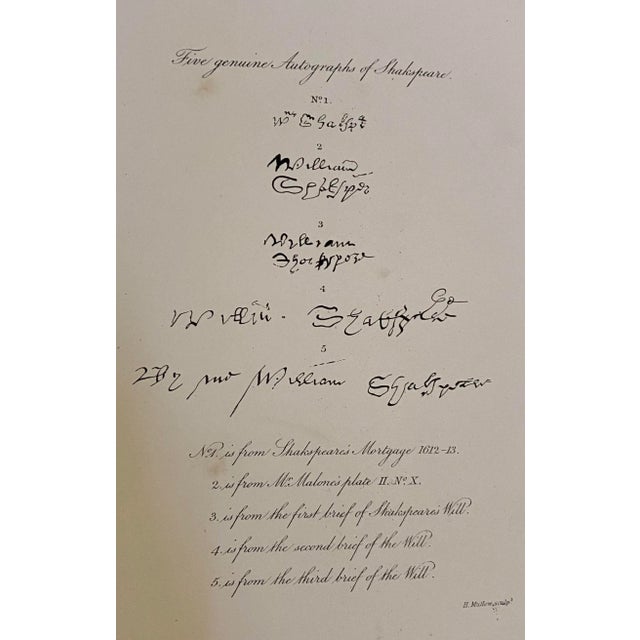 Five genuine Autographs of Shakspeare.
No. 1.
Wm Shakspe
2
William
Shakspe
3
William
Shakspere
4
Willm. Shakspere
5
By me William Shakspere
No. 1. is from Shakspeare's Mortgage 1612-13.
2. is from Mr. Malone's plate II. No. X.
3. is from the first brief of Shakspeare's Will.
4. is from the second brief of the Will.
5. is from the third brief of the Will.
H. Mutlow, sculpt.